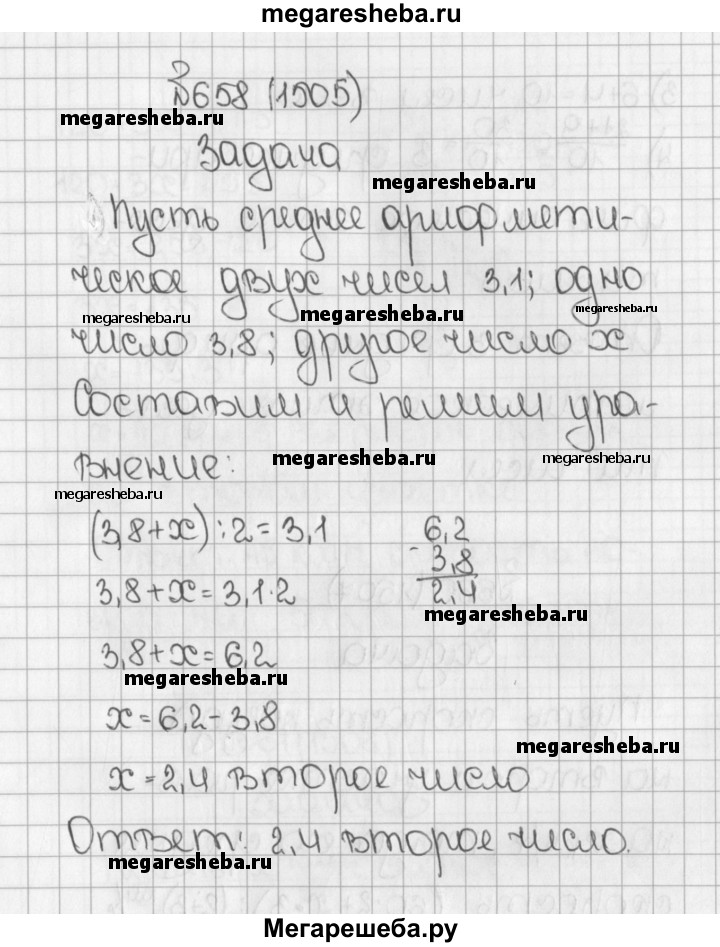 megaresheba.ru
№658 (1505)
megaresheba.ru
Задача
megaresheba.ru
Пусть среднее арифмети-
ческое двух чисел 3,1; одно
megaresheba.ru megaresheba.ru megaresheba.ru
число 3,8; другое число x
Составим и решим ура-
внение: megaresheba.ru megaresheba.ru
megaresheba.ru
(3,8+x):2=3,1 6,2
- 3,8
3,8+x=3,1·2 2,4
megaresheba.ru
3,8+x=6,2
megaresheba.ru
x=6,2-3,8
megaresheba.ru
x=2,4 второе число
Ответ: 2,4 второе число.
megaresheba.ru
Мегарешеба.ру